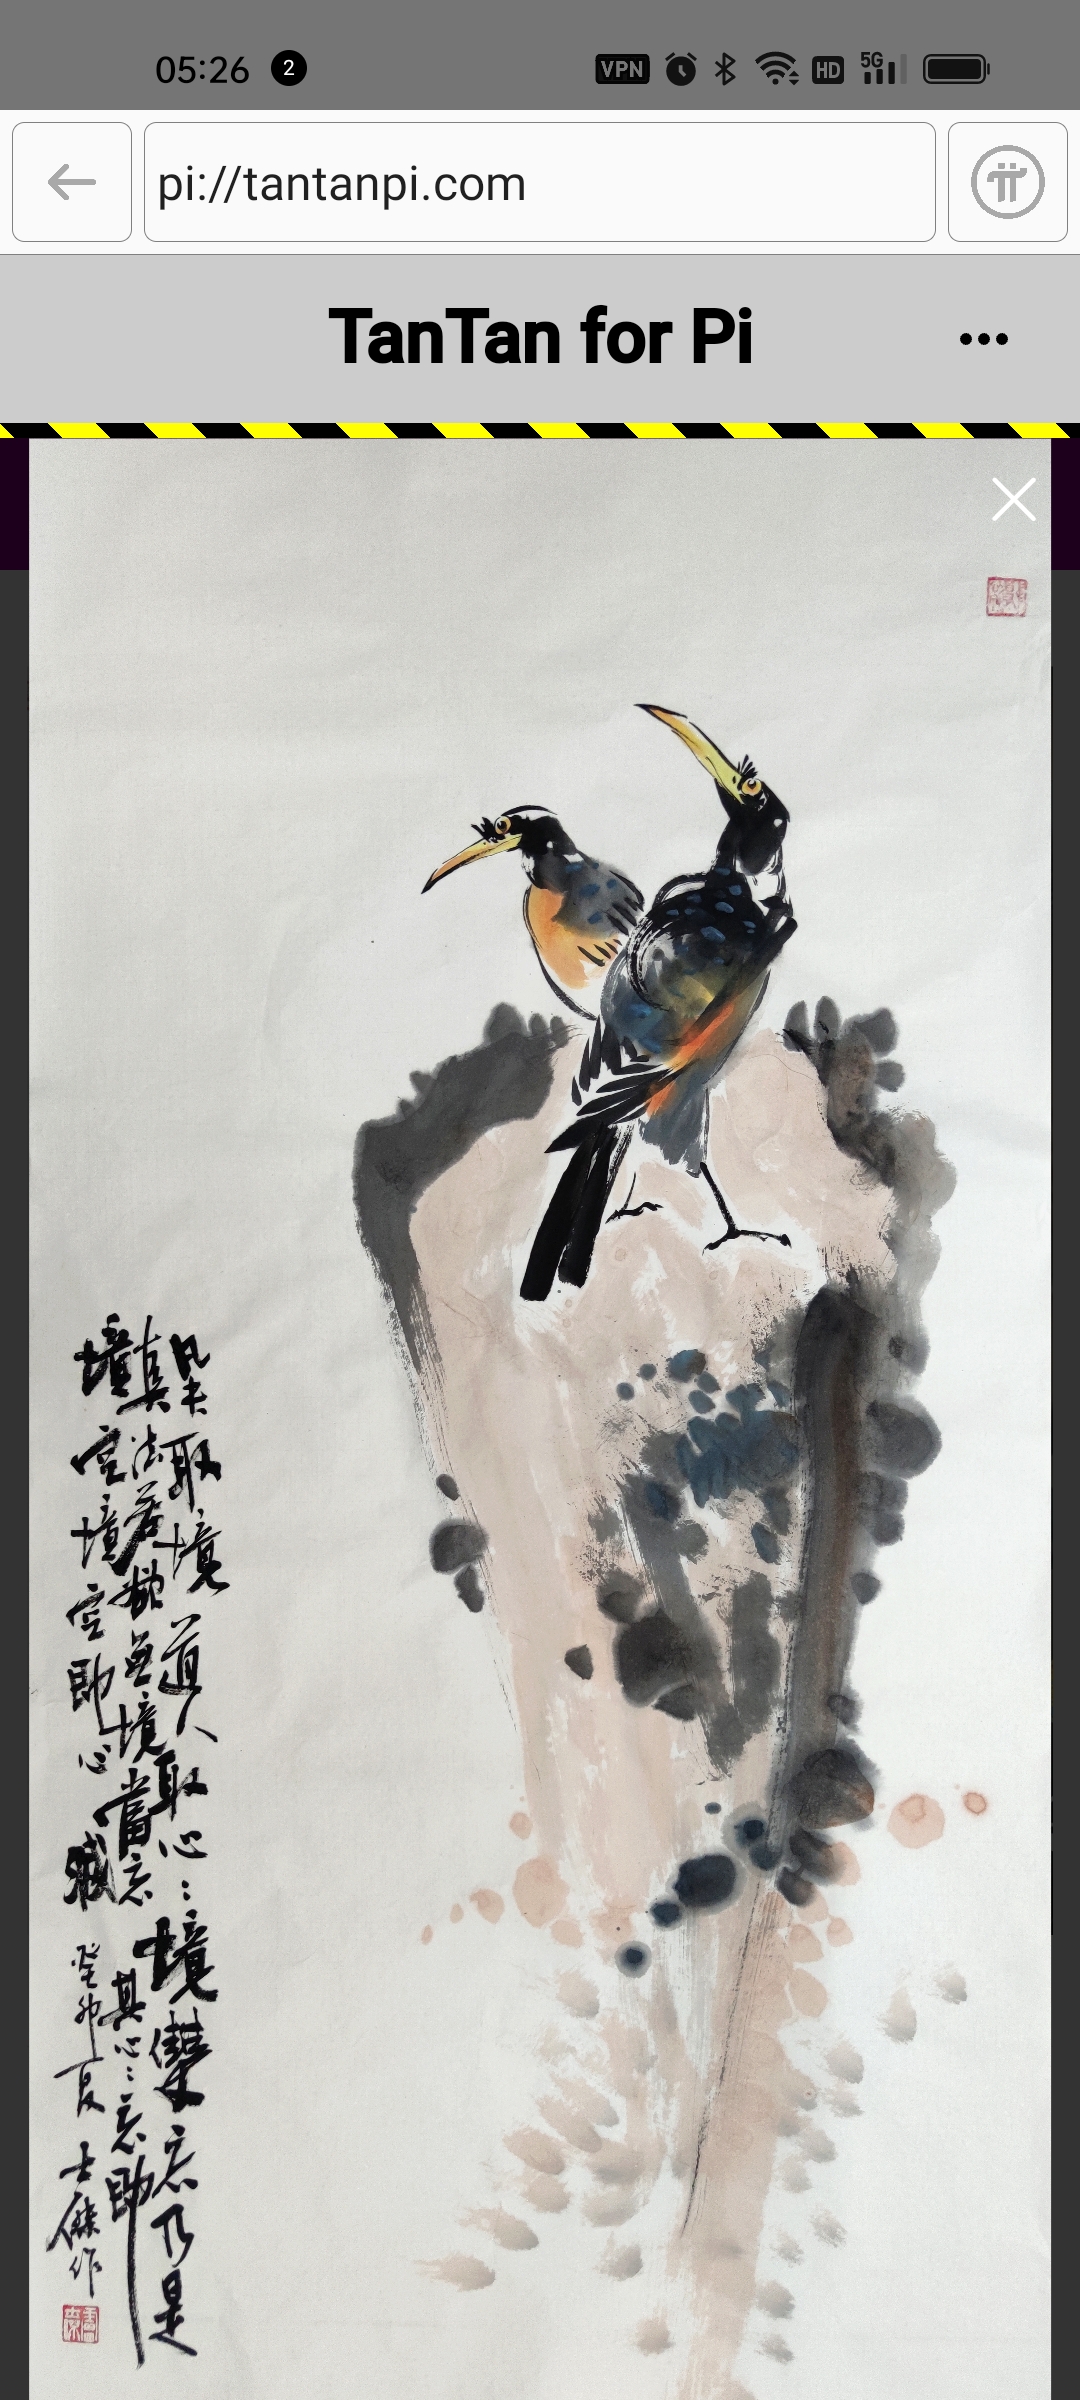 05:26
2
VPN
HD
5G
pi://tantanpi.com
TanTan for Pi
凡夫取境道人取心:境雙忘乃是
真法若欲無境當忘其心:忘即
境空境空即心滅
癸卯夏士傑作